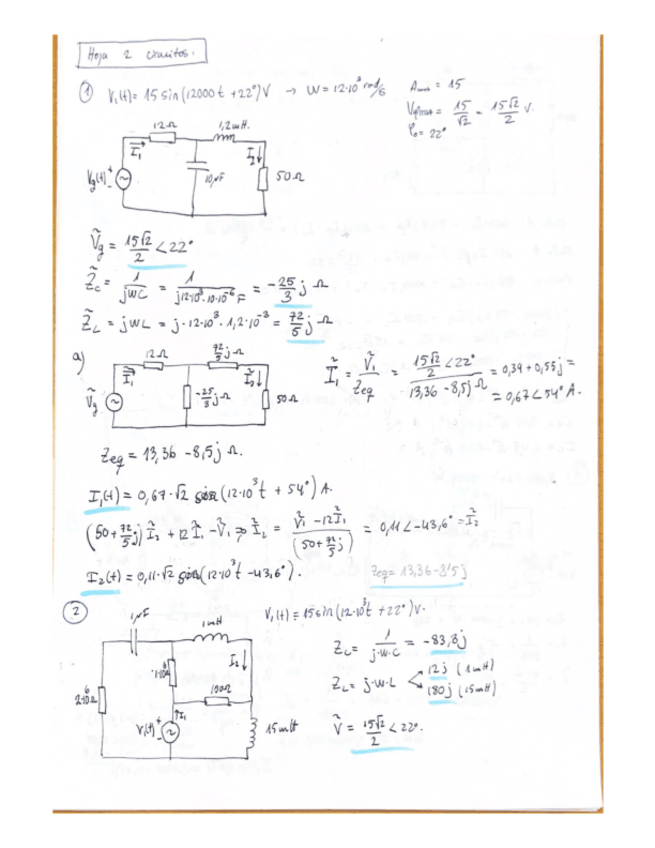 Hoja 2 Circuitos.
① V₁(t) = 15 sin(12000t + 22°) V → W = 12·10³ rad/s
= 15
= 15/√2 = 15√2/2 V.
φ₀ = 22°
12Ω
1,2mH.
I₁
I₂
Vg(t)
+
-
10μF
50Ω
Ṽg = 15√2/2 < 22°
Z̃c = 1/jWC = 1/j12·10³·10·10⁻⁶F = -25/3 j Ω
Z̃L = jWL = j·12·10³·1,2·10⁻³ = 72/5 j Ω
a)
12Ω
72/5 jΩ
Ĩ₁
Ĩ₂
Ṽg
-25/3 jΩ
50Ω
Ĩ₁ = Ṽ₁/Zeq = 15√2/2 <22° / 13,36 - 8,5j Ω = 0,39 + 0,55j =
= 0,67 < 54° A.
Zeq = 13,36 - 8,5j Ω.
I₁(t) = 0,67·√2 sin(12·10³t + 54°) A.
(50 + 72/5 j)Ĩ₂ + 12Ĩ₁ - Ṽ₁ ⇒ Ĩ₂ = Ṽ₁ - 12Ĩ₁ / (50 + 72/5 j) = 0,11 < -43,6° = Ĩ₂
I₂(t) = 0,11·√2 sin(12·10³t - 43,6°).
Zeq = 13,36 - 8'5j
②
V₁(t) = 15 sin(12·10³t + 22°) V.
1μF
1mH
I₂
100Ω
I₁
V₁(t)
+
-
15mH
Zc = 1/j·W·C = -83,8j
ZL = j·W·L
12j (1mH)
180j (15mH)
Ṽ = 15√2/2 < 22°.